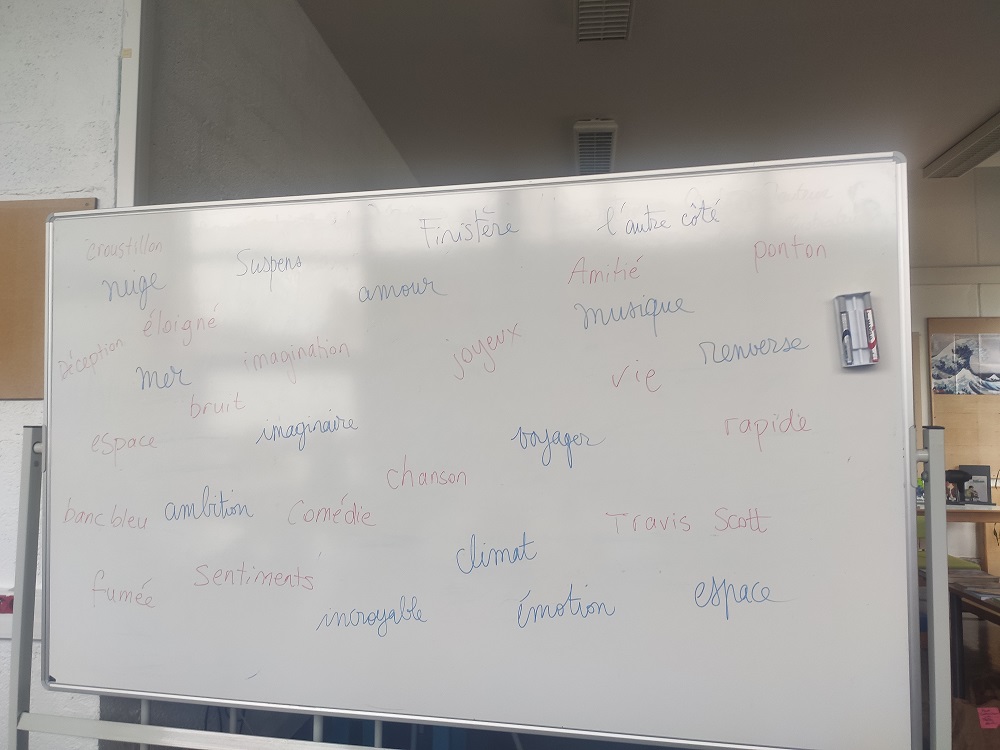 Finistère
l'autre côté
croustillon
Suspens
Amitié
ponton
nuige
amour
musique
éloigné
joyeux
renverse
Déception
imagination
mer
vie
bruit
espace
imaginaire
voyager
rapide
chanson
banc bleu
ambition
Comédie
Travis Scott
climat
fumée
sentiments
incroyable
émotion
espace